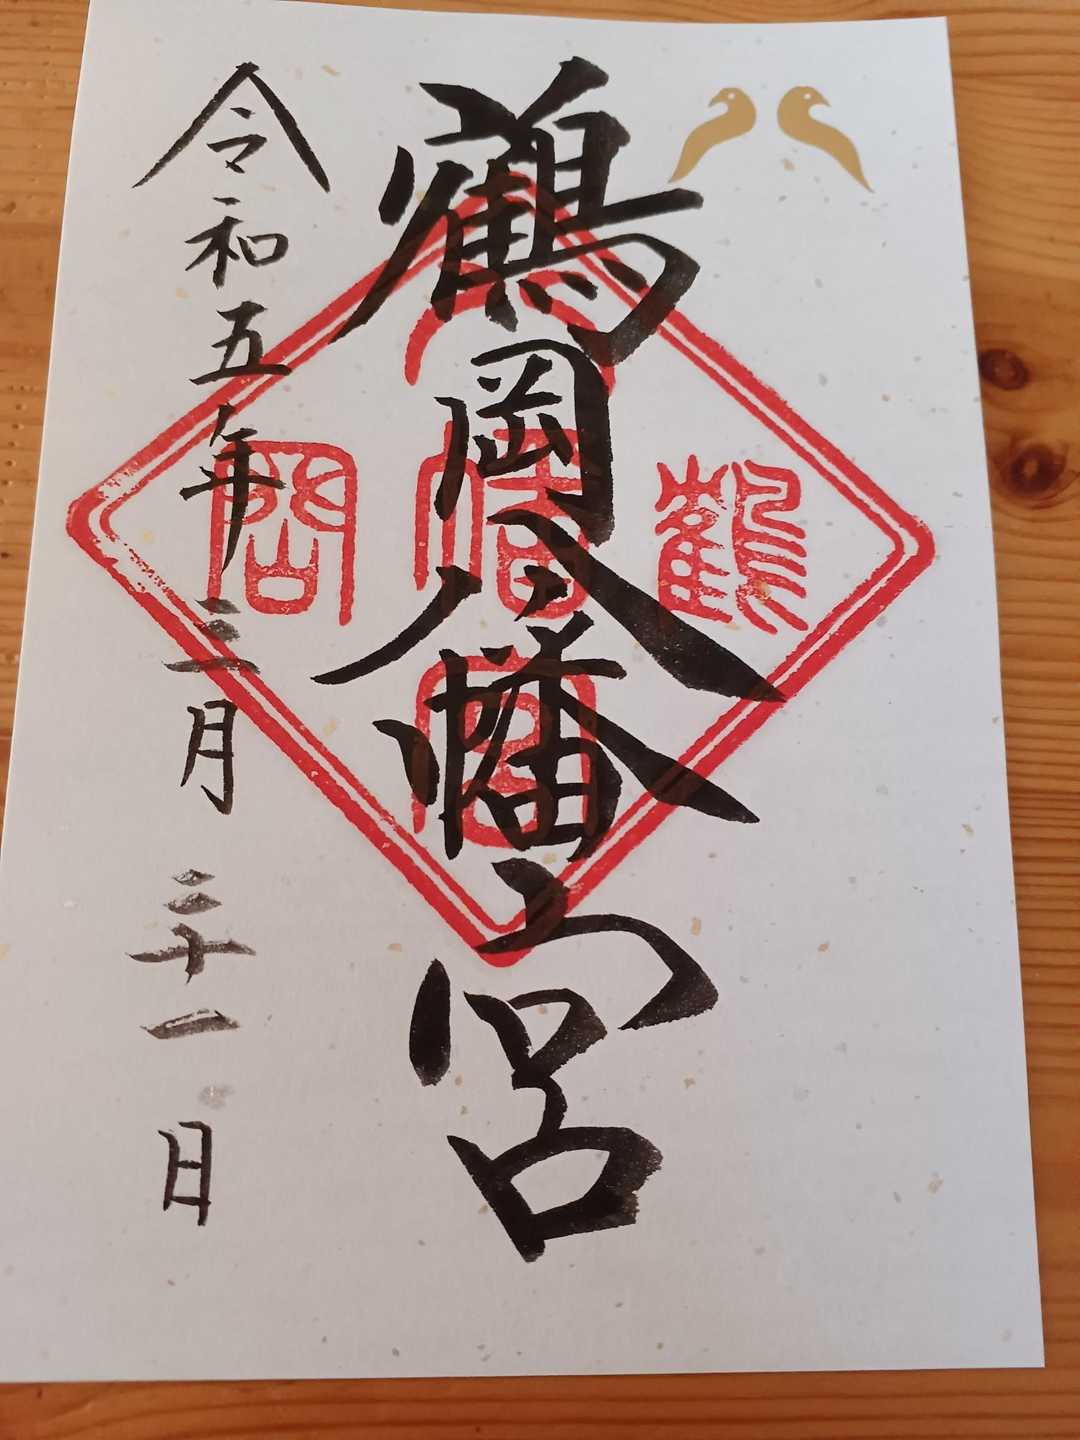 鶴岡八幡宮
鶴
八
幡
宮
岡
令和五年三月三十一日